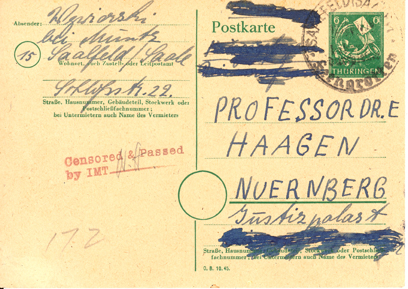 Absender:
bei Muntz
15
Saalfeld/Saale
Wohnort, auch Zustell- oder Leitpostamt
Schloßstr. 22.
Straße, Hausnummer, Gebäudeteil, Stockwerk oder
Postschließfachnummer;
bei Untermietern auch Name des Vermieters
Postkarte
6 6
THÜRINGEN
Censored & Passed
by IMT
PROFESSOR DR. E
HAAGEN
NUERNBERG
Justizpalast
Straße, Hausnummer, Gebäudeteil, Stockwerk oder Postschließ-
fachnummer; bei Untermietern auch Name des Vermieters
17.2